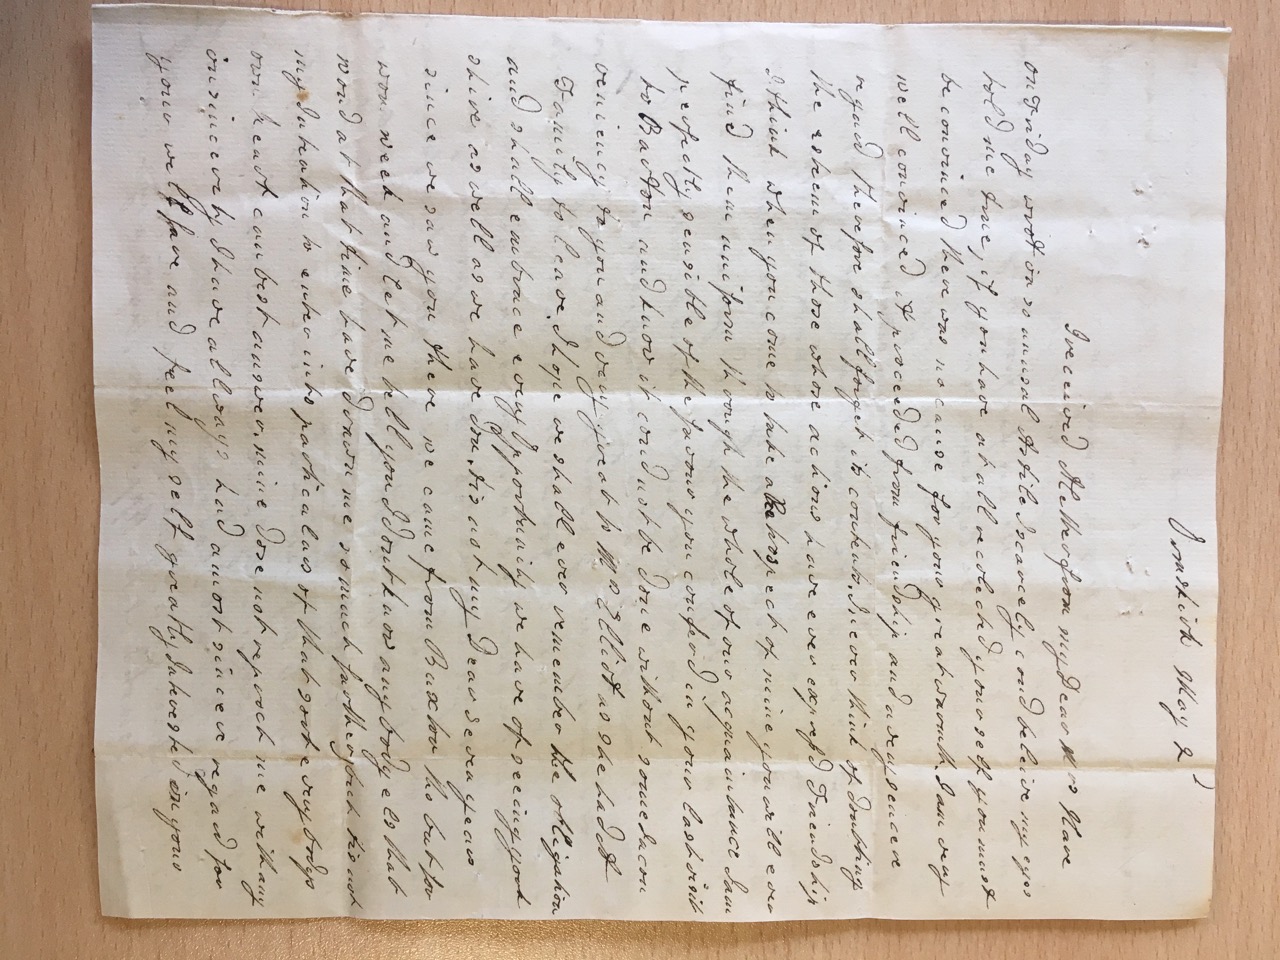 Ormskirk May 2d
I received A letter from my Dear Mrs Hare
on Friday wrot in so unusal A stile I scarcely coud beleive my eyes
told me true, if you have at all recolected your self you must
be convinced there was no cause for your great warmth. I am very
well convinced it proceeded from friendship and a very sencere
regard therefore shall forget its contents. I never think of doubting
the esteem of those whose actions have ever express'd Friendship
I think when you come to take a Retrospect of mine you will ever
find them uniform through the whole of our acquaintance I am
perfectly sensible of the favour you conferd in your last visit
to Barton and know it coud not be done without some Incon
veniency to you and very great to Mrs Elliot as she had A
Family to leave, I hope we shall ever remember the obligation
and shall embrace every Opportunity we have of seeing york
shire as well as we have don. tis not my Dear seven years
since we saw you there we came from Buxton tho but for
won week and let me tell you I dont know any body els that
woud at that time have drawn me so much further, but tis not
my Intention to enter into particulars of that sort every bodys
own heart can best answer. mine dose not reproch me with any
insincerety I have allways had a most sincere regard for
your wellfare and feel my self greatly Interested in your